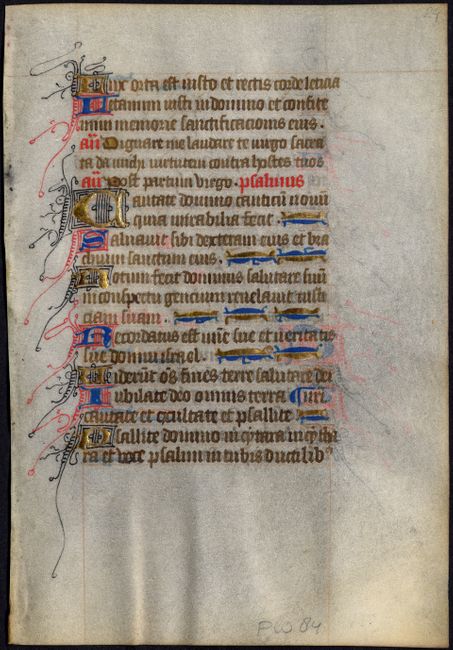 Lux orta est iusto et rectis corde leticia
Letamini iusti in domino et confite
mini memorie sanctificacionis eius.
añ Dignare me laudare te uirgo sacra
ta da michi uirtutem contra hostes tuos
añ Post partum uirgo. psalmus
Cantate domino canticū nouū
quia mirabilia fecit.
Saluauit sibi dexteram eius et bra
chium sanctum eius.
Notum fecit dominus salutare suū
in conspectu gencium reuelauit iusti
ciam suam.
Recordatus est mīe sue et ueritatis
sue domui israel.
Uiderūt oēs fines terre salutare dei
Iubilate deo omnis terra
cantate et exultate et psallite
Psallite domino in cythara in cytha
ra et uoce psalmi in tubis ductilibꝰ
PW 84